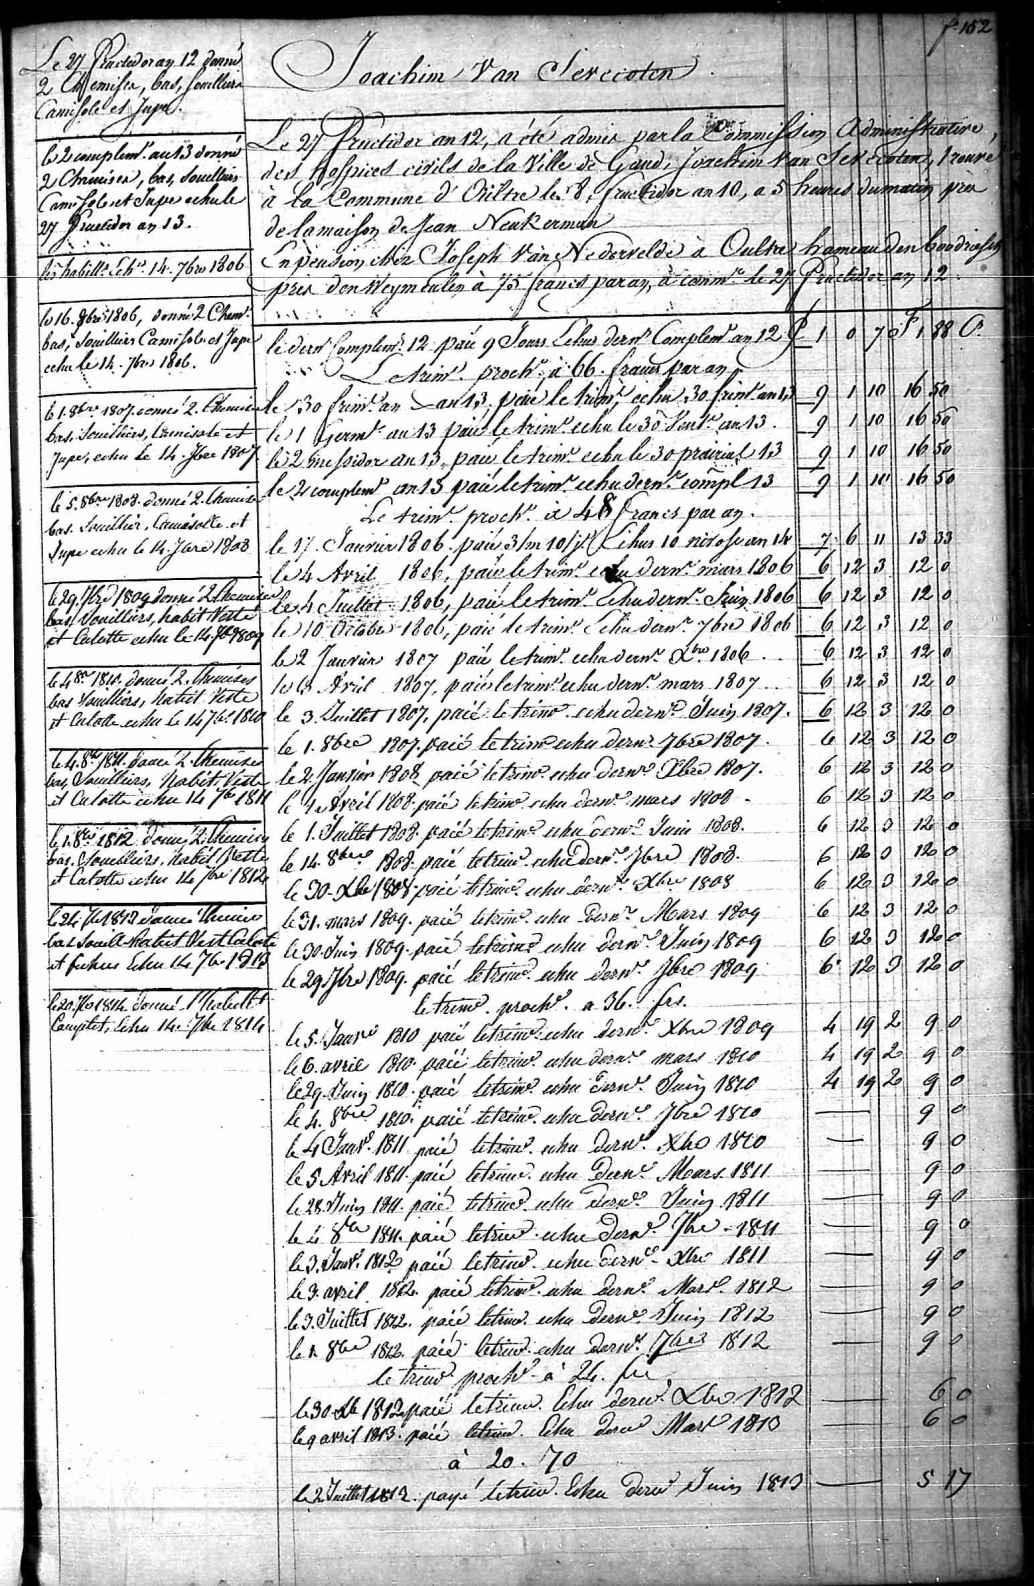 f. 152
Joachim Van Sevecoten.
Le 27 Fructidor an 12 donné
2 Chemises, bas, souilliers
Camisole et Jupe.
le 2 complemt. an 13 donné
2 Chemises, bas, Souilliers
Camisole et Jupe echu le
27 Fructidor an 13.
1806
le 16. 8bre 1806, donné 2 Chem.
bas, Souilliers Camisole et Jupe
echu le 14. 7bre 1806.
le 1. 8bre 1807 donné 2. Chemises
bas, Souilliers, Camisole et
Jupe, echu le 14. 7bre 1807
le 5. 8bre 1808. donné 2. Chemises
bas. Souillier, Camisolle et
Jupe echu le 14. 7bre 1808
le 29. 7bre 1809 donné 2. Chemises
bas, Souilliers, habit Veste
et Culotte echu le 14. 7bre 1809
le 4 8bre 1810. donné 2. Chemises
bas Souilliers, Habit Veste
et Culotte echu le 14 7bre 1810
le 4. 8bre 1811. donné 2. Chemises
bas, Souilliers, Habit Veste
et Culotte echu 14 7bre 1811
le 1. 8bre 1812 donné 2. Chemises
bas, Souilliers, Habit Veste
et Culotte echu 14 7bre 1812
le 24. 7bre 1813 donné Chemises
bas Souill. Habit Vest Culotte
et Echu 14 7bre 1813
le 20. 7bre 1814. donné l'habillt
Complet, Echu 14. 7bre 1814
Le 27 Fructidor an 12, a été admis par la Commission Administrative,
des hospices civils de la Ville de Gand, Joachim Van Sevecoten, trouvé
à la Commune d' le 8, fructidor an 10, a 5 heures du matin près
de la maison de Jean Neukerman
En pension chez Joseph Van Nedervelde à Oultre hameau den
pres den Weymeulen à 75 francs par an, à commr. le 27 Fructidor an 12.
le dernr. Complemt. 12 paié 9 Jours Echus dernr. Complemt. an 12 £ 1 0 7 F 1 88 Cs
Le trimr. prochr. à 66. francs par an
le 30 frimr. an 13, paié le trimr. echu 30 frimr. an 13 9 1 10 16 50
le 1 Germl. an 13 paié le trimr. echu le 30 Vents. an 13. 9 1 10 16 50
le 2 messidor an 13, paié le trimr. echu le 30 prairial 13 9 1 10 16 50
le 2 complemt. an 13 paié le trimr. echu dernr. compl. 13 9 1 10 16 50
Le trimr. prochr. à 48 francs par an.
le 17. Janvier 1806. paié 3/m 10/j. Echus 10 nivose an 14 7. 6 11 13 33
le 4 Avril 1806, paié le trimr. echu dernr. mars 1806 6 12 3 12 0
le 4 Juillet 1806, paié le trimr. Echu dernr. Juin 1806 6 12 3 12 0
le 10 Octobre 1806, paié le trimr. Echu dernr. 7bre 1806 6 12 3 12 0
le 2 Janvier 1807 paié le trimr. echu dernr. Xbre 1806. 6 12 3 12 0
le 3 Avril 1807, paié le trimr. echu dernr. mars 1807 6 12 3 12 0
le 3. Juillet 1807, paié le trimr. echu dernr. Juin 1807. 6 12 3 12 0
le 1. 8bre 1807. paié le trimr. echu dernr. 7bre 1807. 6 12 3 12 0
le 2. Janvier 1808, paié le trimr. echu dernr. Xbre 1807. 6 12 3 12 0
le 4 Avril 1808. paié le trimr. echu dernr. mars 1808. 6 12 3 12 0
le 1. Juillet 1808. paié le trimr. echu dernr. Juin 1808. 6 12 3 12 0
le 14. 8bre 1808. paié le trimr. echu dernr. 7bre 1808. 6 12 3 12 0
le 30. Xbre 1808. paié le trimr. echu dernr. Xbre 1808 6 12 3 12 0
le 31. mars 1809. paié le trimr. echu dernr. Mars 1809 6 12 3 12 0
le 30. Juin 1809. paié le trimr. echu dernr. Juin 1809 6 12 3 12 0
le 29 7bre 1809. paié le trimr. echu dernr. 7bre 1809 6 12 3 12 0
le trimr. prochr. a 36. frs.
le 5. Janvr. 1810 paié le trimr. echu dernr. Xbre 1809 4 19 2 9 0
le 6. avril 1810. paié le trimr. echu dernr. mars 1810 4 19 2 9 0
le 29. Juin 1810. paié le trimr. echu dernr. Juin 1810 4 19 2 9 0
le 4. 8bre 1810. paié le trimr. echu dernr. 7bre 1810 9 0
le 4 Janvr. 1811 paié le trimr. echu dernr. Xbre 1810 9 0
le 5 Avril 1811. paié le trimr. echu dernr. Mars. 1811 9 0
le 28. Juin 1811. paié le trimr. echu dernr. Juin 1811 9 0
le 4. 8bre 1811. paié le trimr. echu dernr. 7bre 1811 9 0
le 3. Janvr. 1812 paié le trimr. echu dernr. Xbre 1811 9 0
le 3. avril 1812. paié le trimr. echu dernr. Mars. 1812 9 0
le 3. Juillet 1812. paié le trimr. echu dernr. Juin 1812 9 0
le 1. 8bre 1812. paié le trimr. echu dernr. 7bre 1812 9 0
le trimr. prochr. à 24. frs.
le 30 Xbre 1812, paié le trimr. Echu dernr. Xbre 1812 6 0
le 9 avril 1813. paié le trimr. Echu dernr. Mars 1813 6 0
à 20. 70
le 2 Juillet 1813. payé le trimr. Echu dernr. Juin 1813 5 17